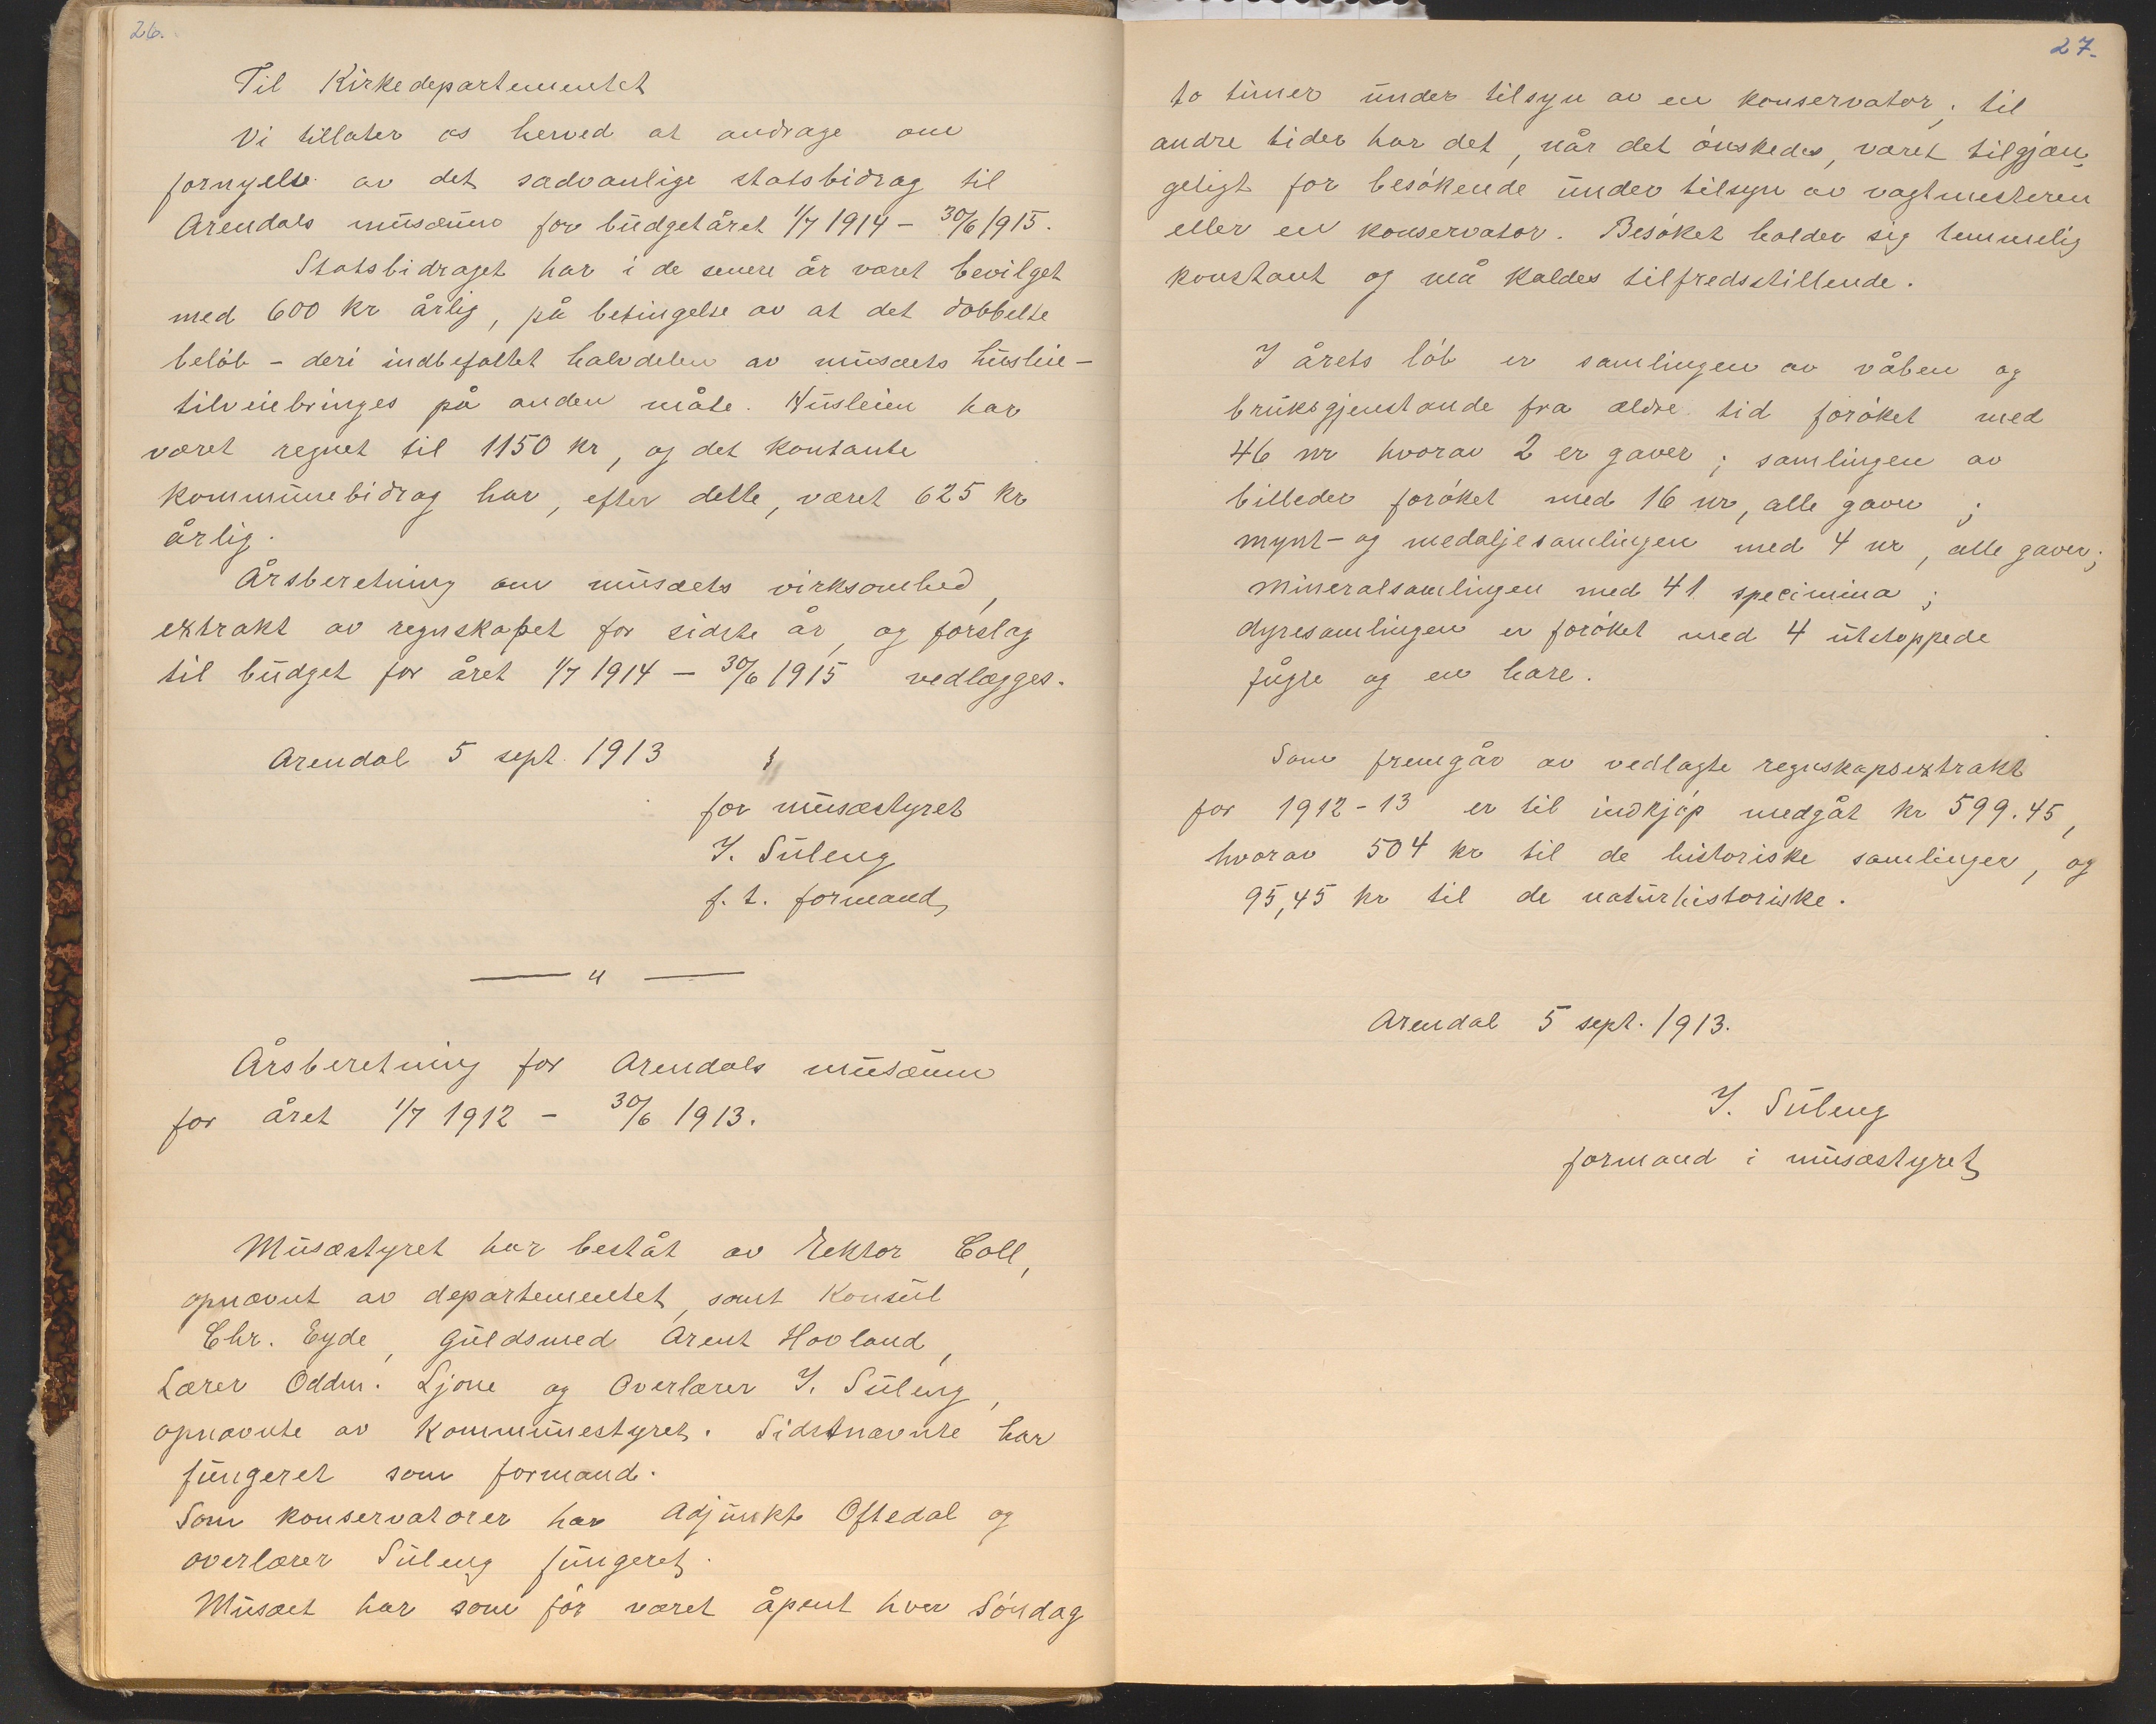 26.
Til Kirkedepartementet
Vi tillater os herved at andrage om
fornyelse av det sædvanlige statsbidrag til
Arendals musæum for budgetåret 1/7 1914 - 30/6 1915.
Statsbidraget har i de senere år været bevilget
med 600 kr årlig, på betingelse av at det dobbelte
beløb - deri indbefattet halvdelen av musæets husleie -
tilveiebringes på anden måte. Husleien har
været regnet til 1150 kr, og det kontante
kommunebidrag har, efter dette, været 625 kr
årlig.
Årsberetning om musæets virksomhed,
extrakt av regnskapet for sidste år, og forslag
til budget for året 1/7 1914 - 30/6 1915 vedlægges.
Arendal 5 sept. 1913
for musæstyret
I. Süleng
f. t. formand
— " —
Årsberetning for Arendals musæum
for året 1/7 1912 - 30/6 1913.
Musæstyret har beståt av Rektor Coll,
opnævnt av departementet, samt Konsul
Chr. Eyde, Guldsmed Arent Hovland,
Lærer Oddm. Ljone og Overlærer I. Süleng,
opnævnte av Kommunestyret. Sidstnævnte har
fungeret som formand.
Som konservatorer har Adjunkt Oftedal og
overlærer Süleng fungeret.
Musæet har som før været åpent hver Søndag
27.
to timer under tilsyn av en konservator; til
andre tider har det, når det ønskedes, været tilgjæn-
geligt for besøkende under tilsyn av vagtmesteren
eller en konservator. Besøket holder sig temmelig
konstant og må kaldes tilfredsstillende.
I årets løb er samlingen av våben og
bruksgjenstande fra ældre tid forøket med
46 nr hvorav 2 er gaver; samlingen av
billeder forøket med 16 nr, alle gaver;
mynt- og medaljesamlingen med 4 nr, alle gaver;
Mineralsamlingen med 41 specimina;
dyresamlingen er forøket med 4 utstoppede
fugle og en hare.
Som fremgår av vedlagte regnskapsextrakt
for 1912-13 er til indkjøp medgåt kr 599.45,
hvorav 504 kr til de historiske samlinger, og
95,45 kr til de naturhistoriske.
Arendal 5 sept. 1913.
I. Süleng
formand i musæstyret